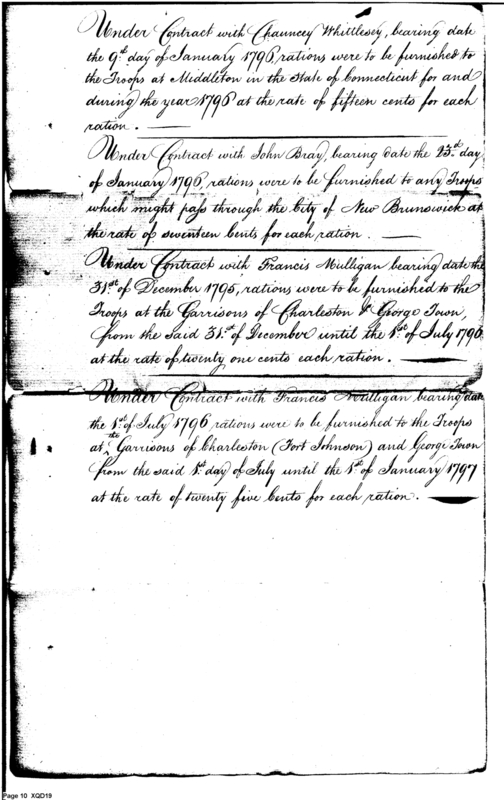 Under Contract with Chauncey Whittlesey, bearing date
the 9th day of January 1796, rations were to be furnished to
the Troops at Middleton in the State of Connecticut for and
during the year 1796 at the rate of fifteen cents for each
ration.
Under Contract with John Bray, bearing date the 23d day
of January 1796, rations were to be furnished to any Troops
which might pass through the City of New Brunswick at
the rate of seventeen Cents for each ration.
Under Contract with Francis Mulligan bearing date the
31st of December 1795, rations were to be furnished to the
Troops at the Garrisons of Charleston & George Town,
from the said 31st of December until the 1st of July 1796
at the rate of twenty one cents each ration.
Under Contract with Francis Mulligan bearing date
the 1st of July 1796 rations were to be furnished to the Troops
at the Garrisons of Charleston (Fort Johnson) and George Town
from the said 1st day of July until the 1st of January 1797
at the rate of twenty five Cents for each ration.
Page 10 XQD19